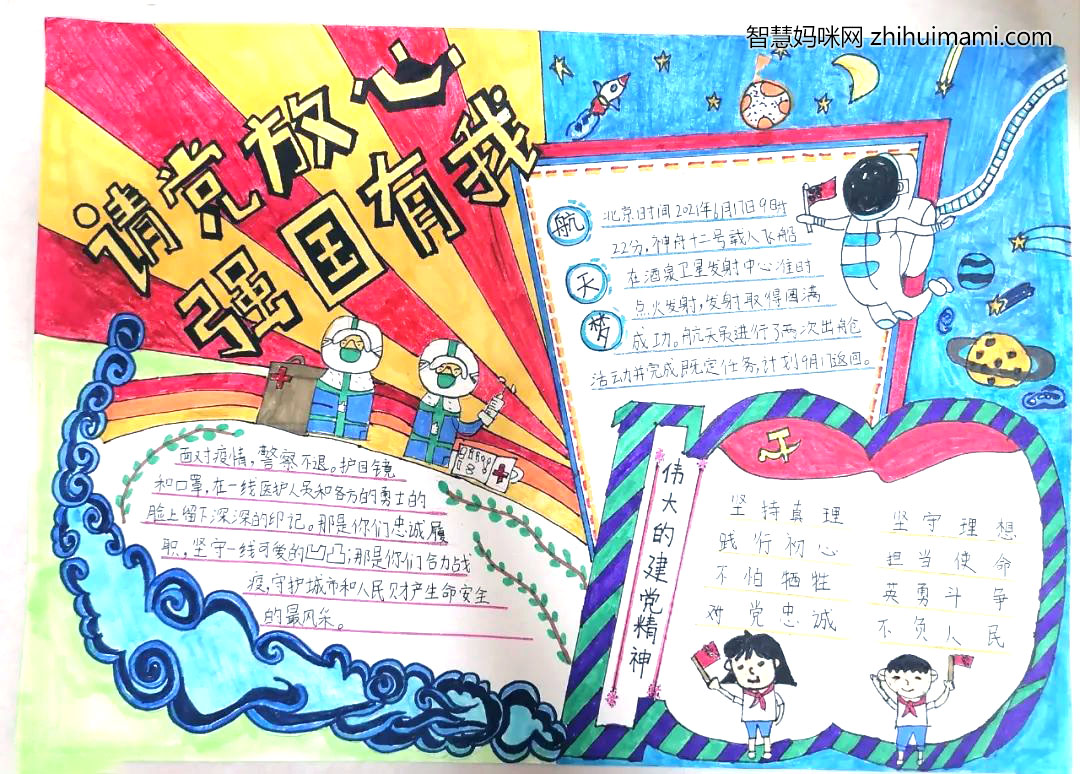 智慧妈咪网 zhihuimami.com
请党放心
强国有我
航天梦
北京时间2021年6月17日9时
22分,神舟十二号载人飞船
在酒泉卫星发射中心准时
点火发射,发射取得圆满
成功。航天员进行了两次出舱
活动并完成既定任务,计划9月返回。
面对疫情,警察不退。护目镜
和口罩,在一线医护人员和各方的勇士的
脸上留下深深的印记。那是你们忠诚履
职,坚守一线可爱的凹凸;那是你们合力战
疫,守护城市和人民财产生命安全
的最风采。
伟大的建党精神
坚持真理 坚守理想
践行初心 担当使命
不怕牺牲 英勇斗争
对党忠诚 不负人民